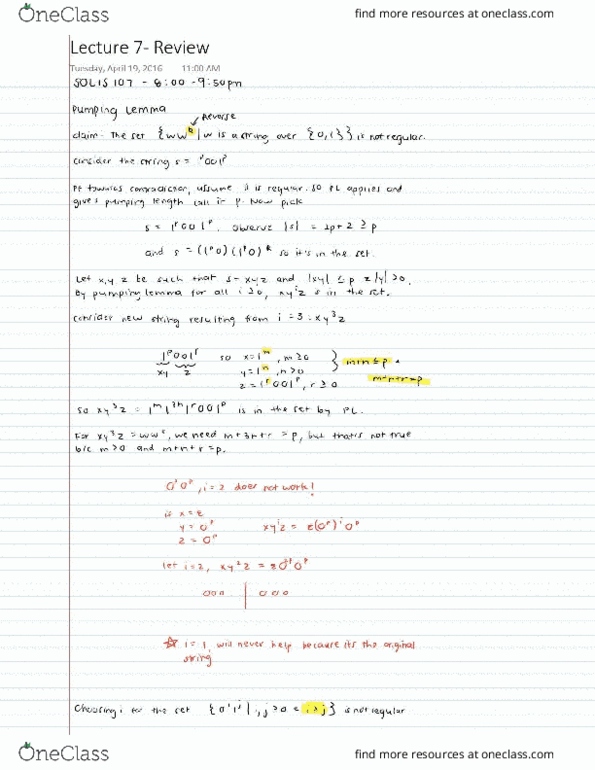 OneClass
find more resources at oneclass.com
Lecture 7- Review
Tuesday, April 19, 2016 11:00 AM
SOLIS 107 - 8:00 - 9:50pm
Pumping Lemma
Reverse
claim: The set {ww^R | w is a string over {0,1}} is not regular.
consider the string s = 1^p001^p
towards contradiction, assume is regular. so PL applies and
gives pumping length call it p. Now pick
s = 1^p001^p. observe |s| = 2p+2 ≥ p
and s = (1^p0)(1^p0)^R so it's in the set.
Let x,y z be such that s=xyz and |xy| ≤ p |y|>0.
By pumping lemma for all i≥0, xy^iz is in the set.
consider new string resulting from i=3: xy^3z
1^p001^p so x=1^m, m≥0 m+n≤p
xy z y=1^n, n>0
z=1^r001^p, r≥0 m+n+r=p
so xy^3z = 1^m1^3n1^r001^p is in the set by PL.
For xy^3z = ww^r, we need m+3n+r = p, but that's not true
b/c m>0 and m+n+r=p.
0^p0^p, i=2 does not work!
is x=ε
y=0^p xy^iz = ε(0^p)^i0^p
z=0^p
let i=2, xy^2z = ε0^2p0^p
000 | 000
☆ i=1, will never help because its the original
string
Choosing i for the set {0^i1^j | i,j ≥0 i≥j} is not regular
OneClass
find more resources at oneclass.com